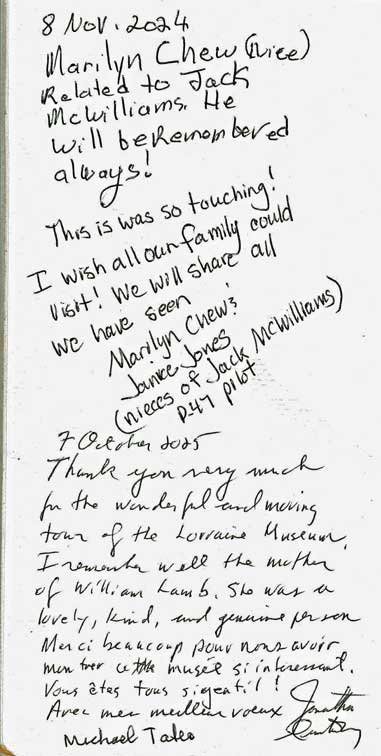 8 Nov. 2024
Marilyn Chew (niece)
Related to Jack
McWilliams. He
will be Remembered
always!
This is was so touching!
I wish all our family could
visit! We will share all
we have seen!
Marilyn Chew &
Janice Jones
(nieces of Jack McWilliams)
P-47 pilot
7 October 2025
Thank you very much
for the wonderful and moving
tour of the Lorraine Museum.
I remember well the mother
of William Lamb. She was a
lovely, kind, and genuine person
Merci beaucoup pour nous avoir
montrer cette musée si interessant.
Vous êtes tous si gentil!
Avec mes meilleur voeux Jonathan
Michael Tates